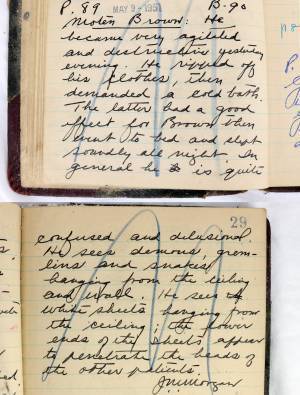 P. 89 MAY - 9 - 1951 B-90
Moten Brown: He
became very agitated
and destructive yesterday
evening. He ripped off
his clothes, then
demanded a cold bath.
The latter had a good
effect for Brown then
went to bed and slept
soundly all night. In
general he is quite
29
confused and delusional.
He sees demons, grem-
lins and snakes
hanging from the ceiling
and wall. He sees
white sheets hanging from
the ceiling. The lower
ends of the sheets appear
to penetrate the heads of
the other patients.
J.M. Morgan